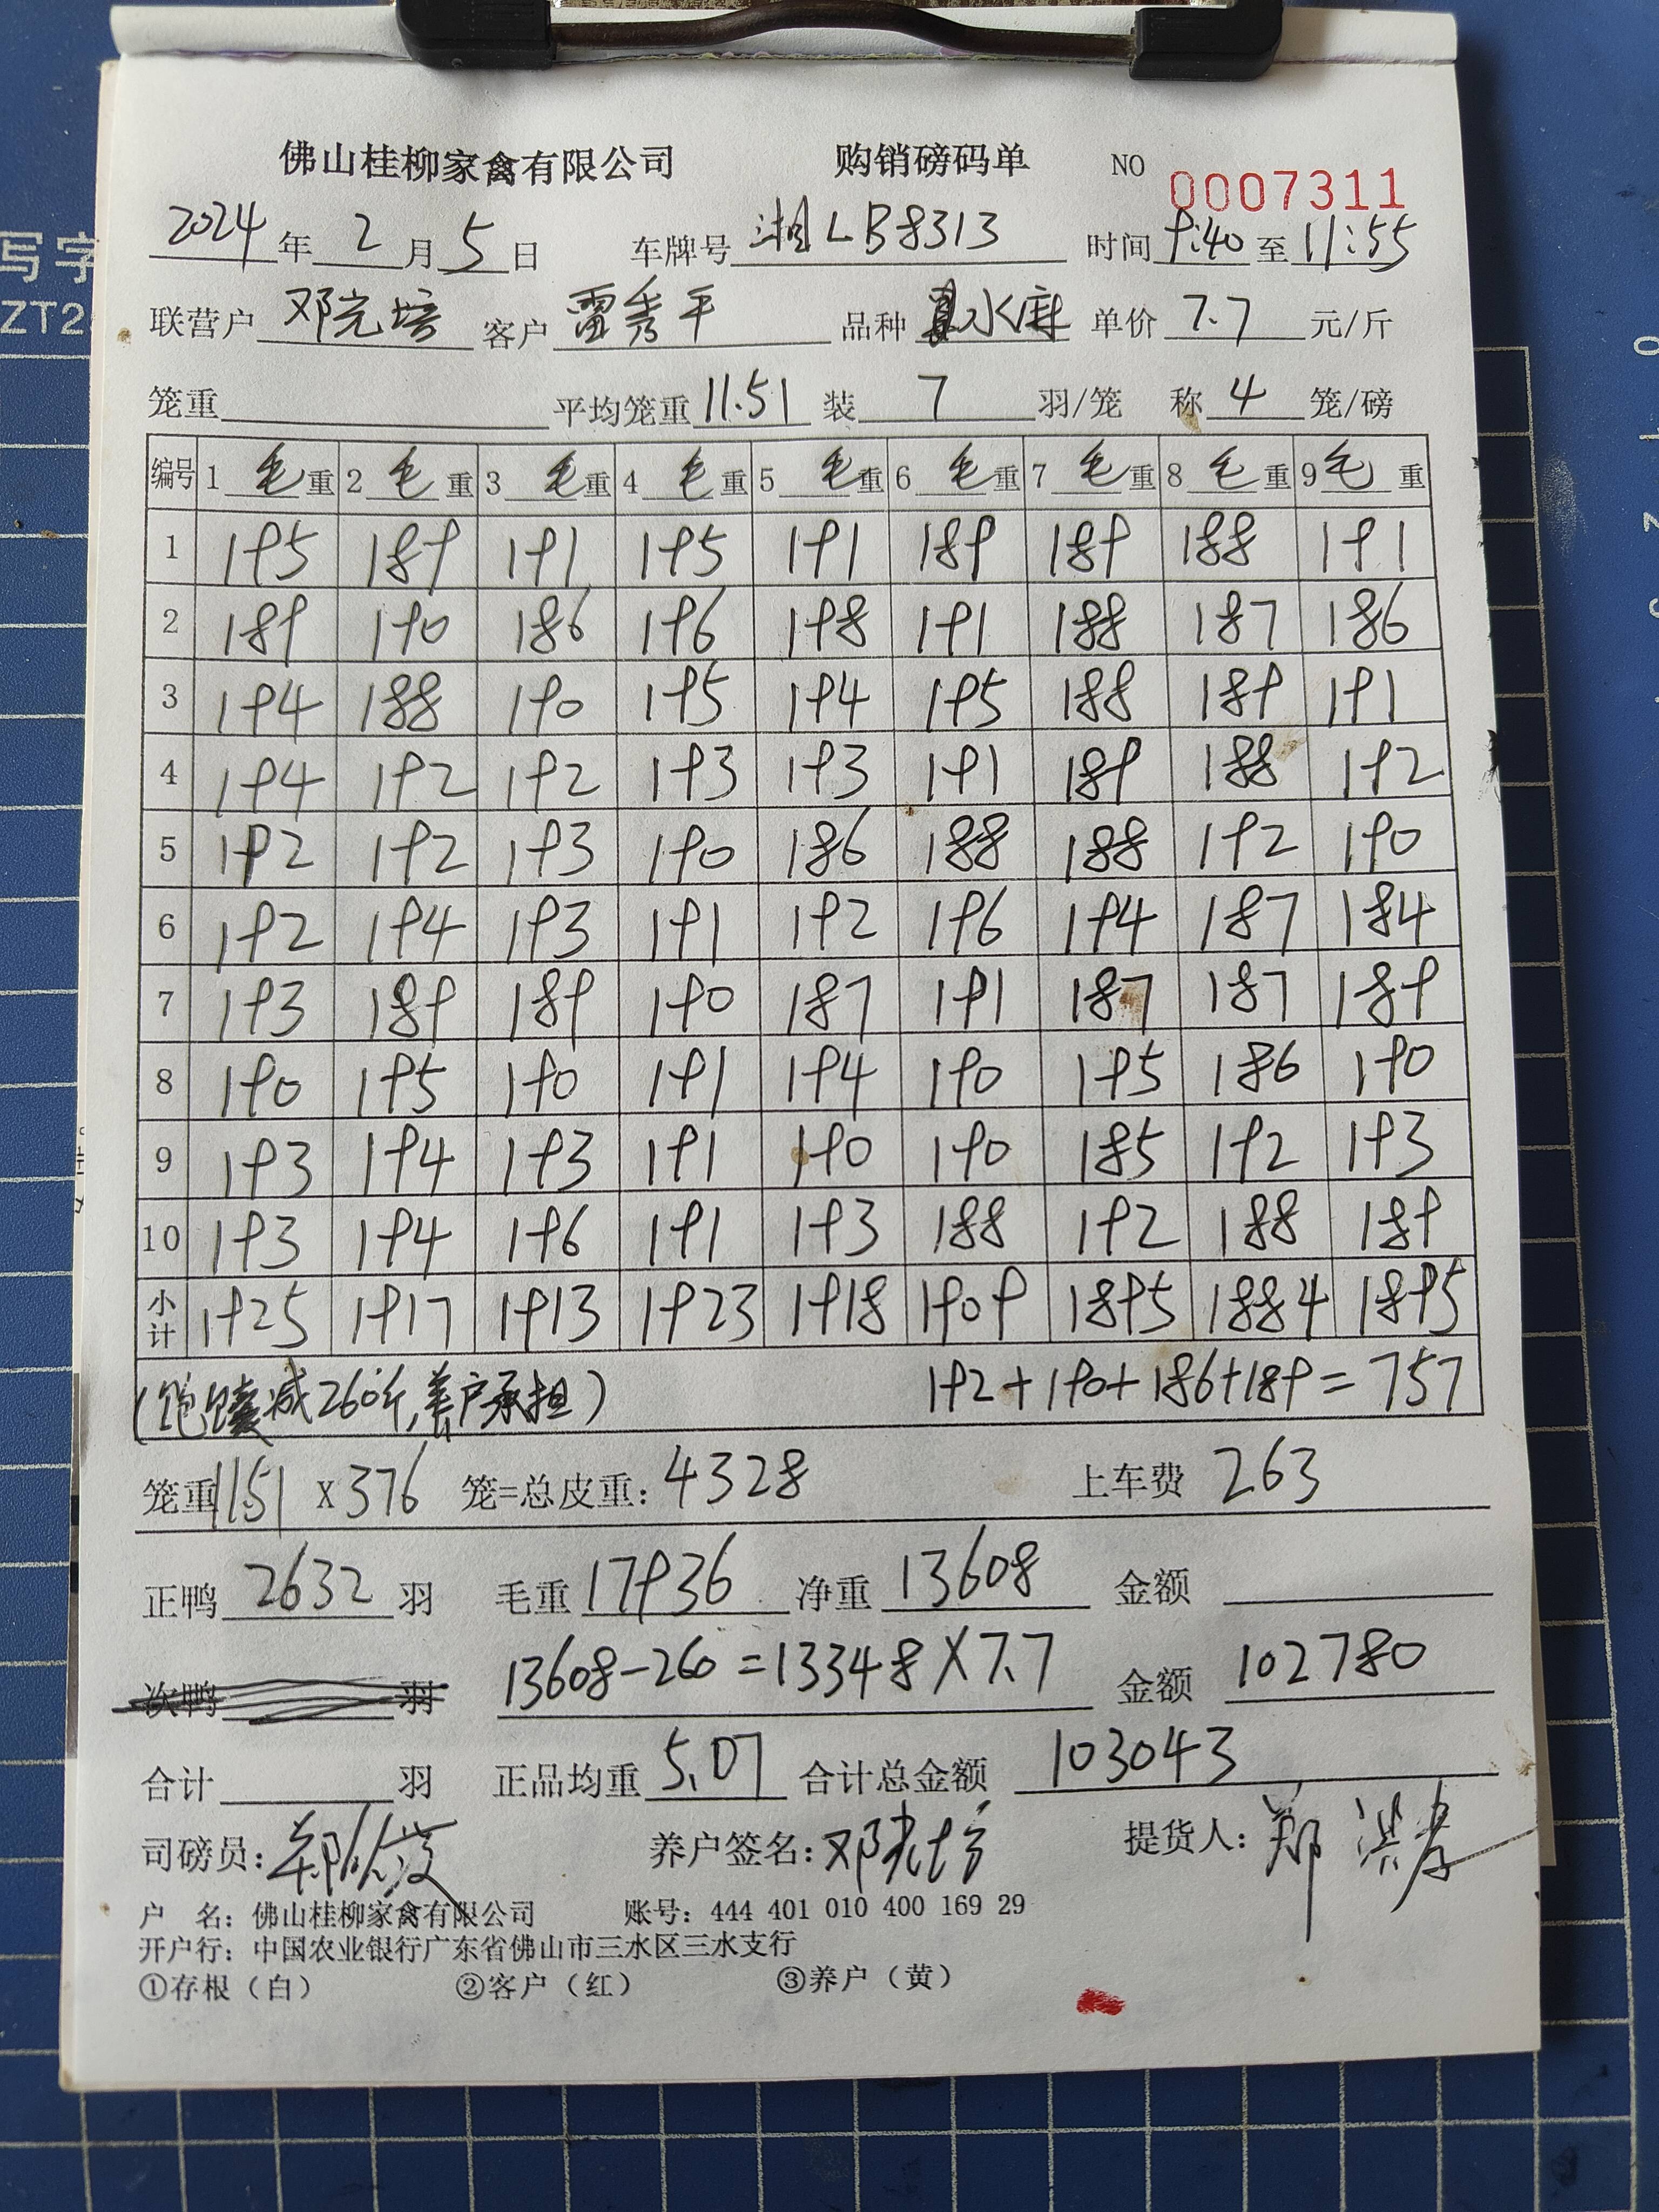 佛山桂柳家禽有限公司 购销磅码单 NO 0007311
2024年2月5日 车牌号 湘LB8313 时间 9:40 至 11:55
联营户 邓光培 客户 雷秀平 品种 水麻 单价 7.7 元/斤
笼重 平均笼重 11.51 装 7 羽/笼 称 4 笼/磅
编号 1 毛重 2 毛重 3 毛重 4 毛重 5 毛重 6 毛重 7 毛重 8 毛重 9 毛重
1 195 189 191 195 191 189 189 188 191
2 189 190 186 196 198 191 188 187 186
3 194 188 190 195 194 195 188 189 191
4 194 192 192 193 193 191 189 188 192
5 192 192 193 190 186 188 188 192 190
6 192 194 193 191 192 196 194 187 184
7 193 189 189 190 187 191 187 187 189
8 190 195 190 191 194 190 195 186 190
9 193 194 193 191 190 190 185 192 193
10 193 194 196 191 193 188 192 188 189
小计 1925 1917 1913 1923 1918 1909 1895 1884 1895
(饱嗉减260斤,养户承担) 192+190+186+189=757
笼重 11.51 X 376 笼=总皮重: 4328 上车费 263
正鸭 2632 羽 毛重 17936 净重 13608 金额
次鸭 羽 13608-260=13348X7.7 金额 102780
合计 羽 正品均重 5.07 合计总金额 103043
司磅员: 养户签名: 邓光培 提货人: 郑洪孝
户 名: 佛山桂柳家禽有限公司 账号: 444 401 010 400 169 29
开户行: 中国农业银行广东省佛山市三水区三水支行
①存根(白) ②客户(红) ③养户(黄)
写字
ZT2